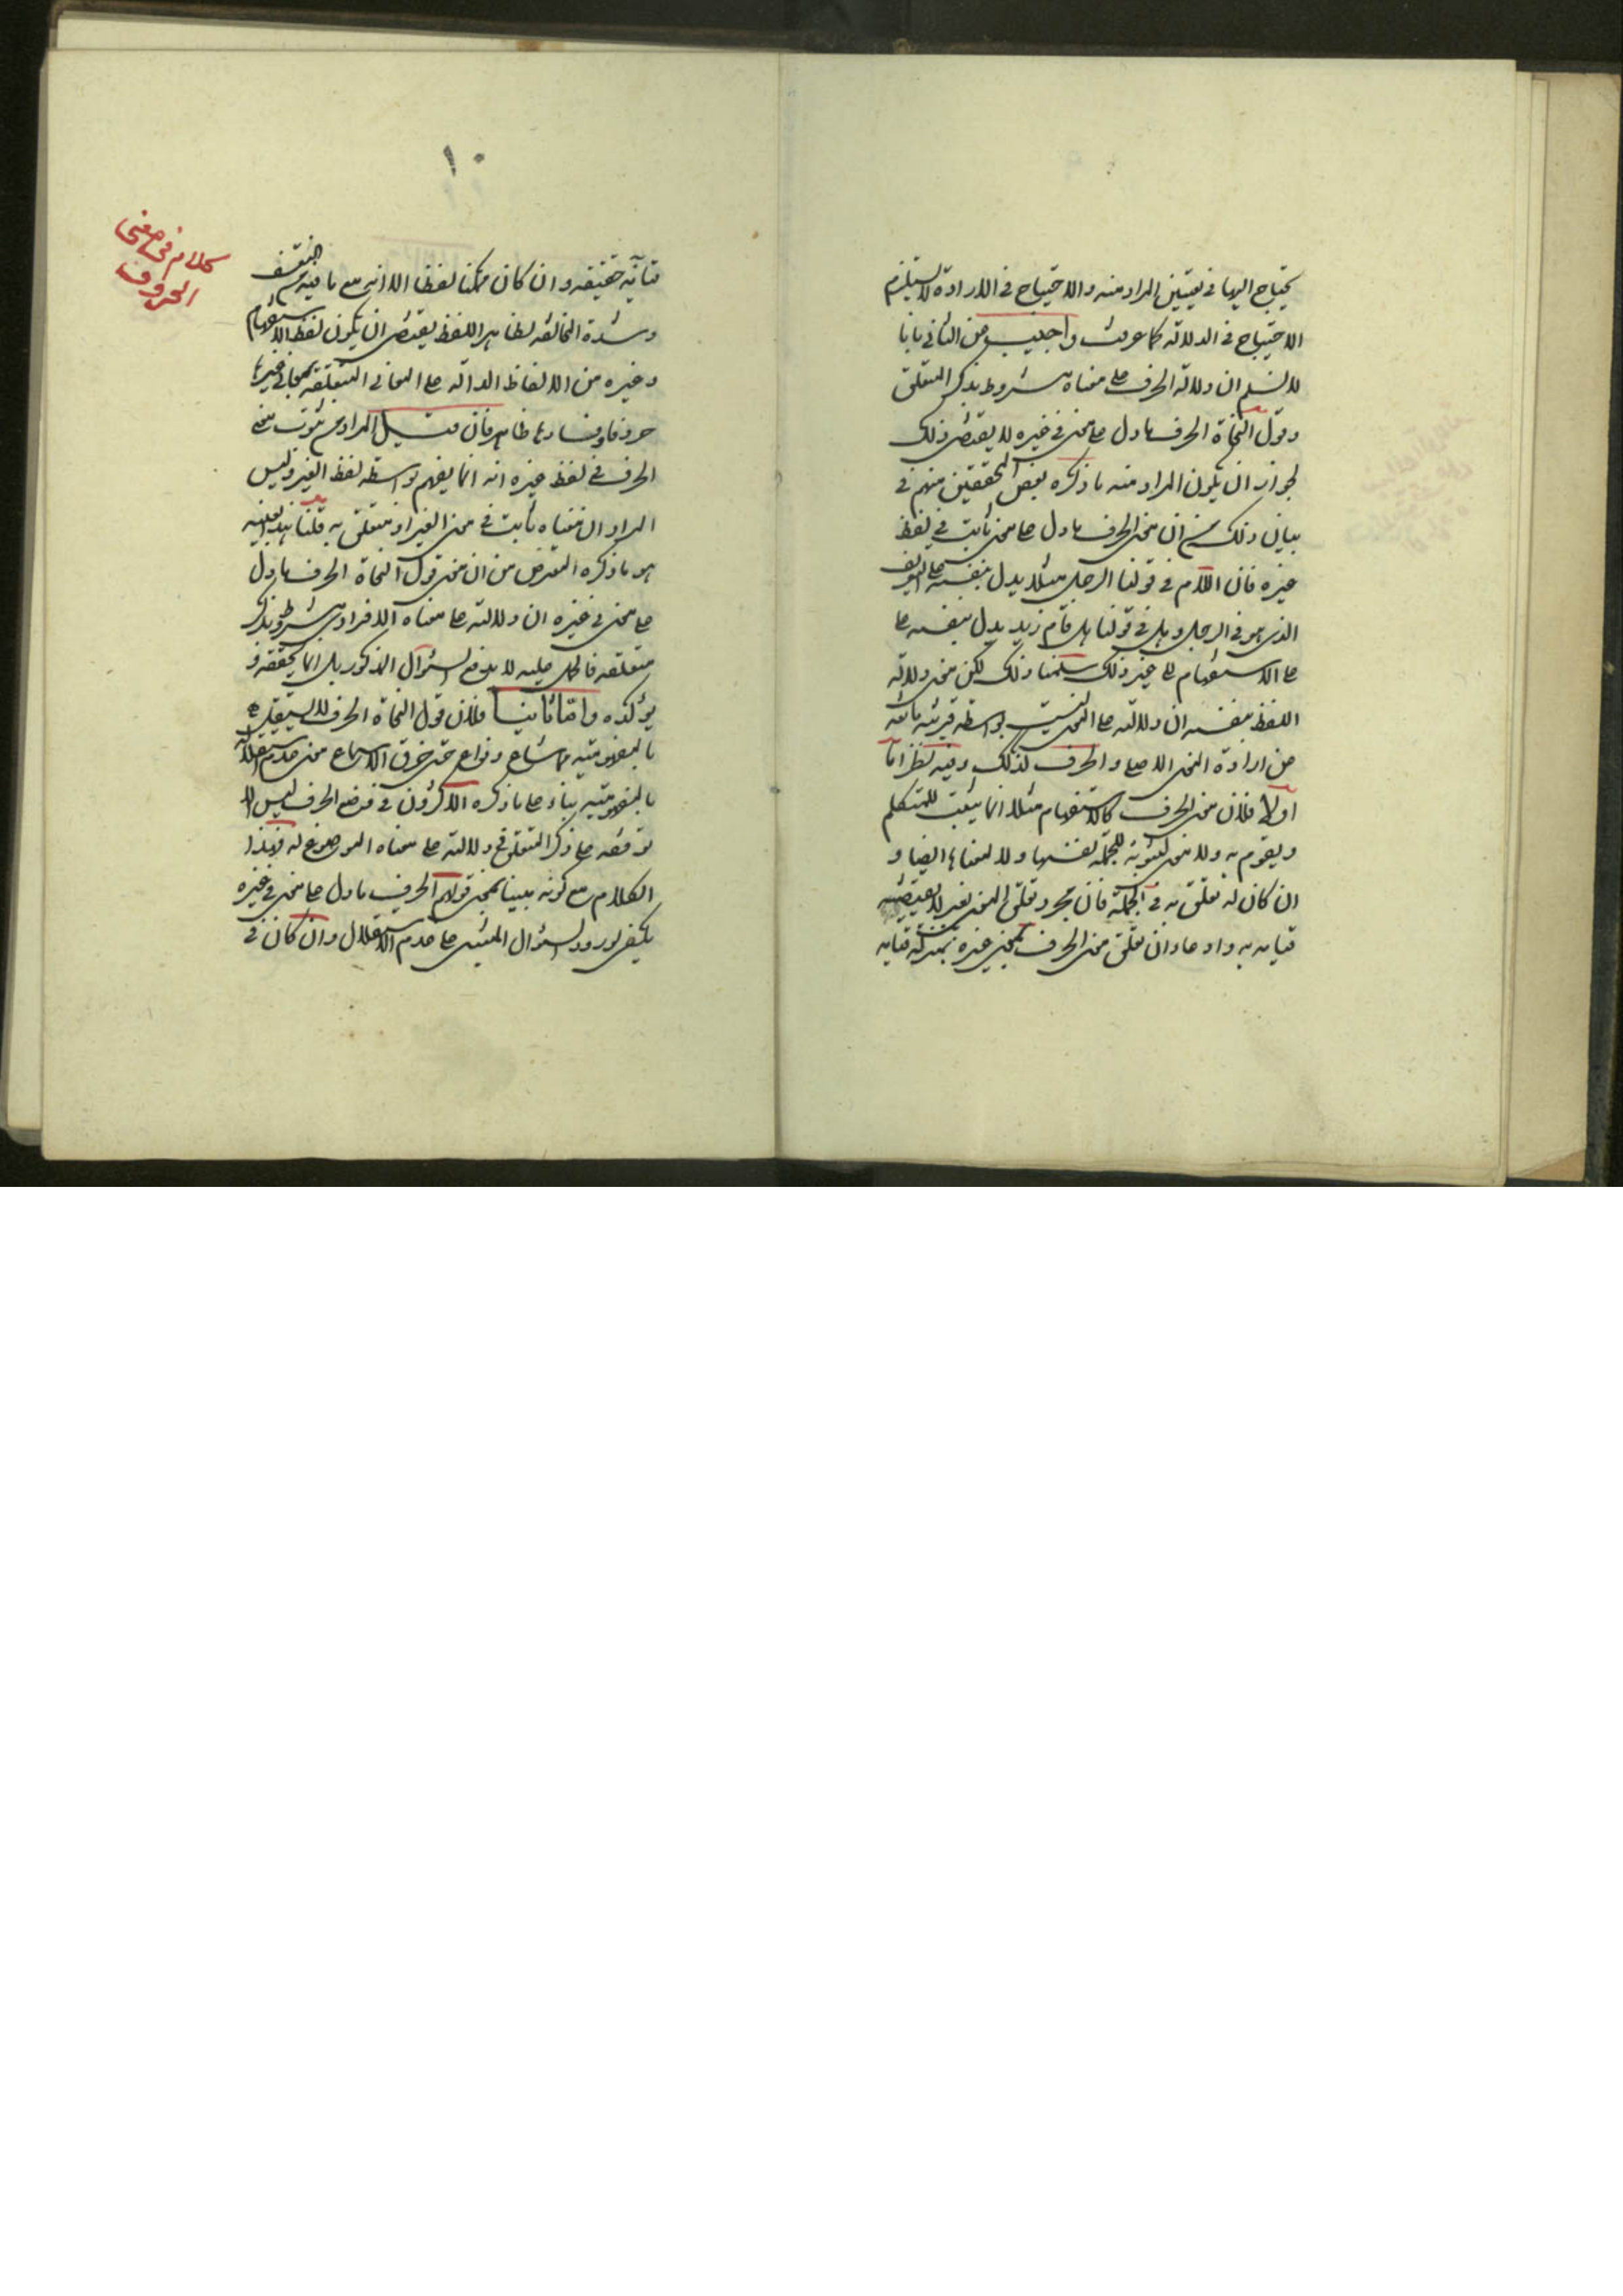 يحتاج اليها في تعيين المراد منه والاحتياج في الارادة لا يستلزم
الاحتياج في الدلالة كما عرفت واجيب من الثاني بانا
لا نسلم ان دلالة الحرف على معناه مشروط بذكر المتعلق
وقول النحاة الحرف ما دل على معنى في غيره لا يقتضي ذلك
لجواز ان يكون المراد منه ما ذكره بعض المحققين منهم في
بيان ذلك من ان معنى الحرف ما دل على معنى ثابت في لفظ
غيره فان اللام في قولنا الرجل مثلا يدل بنفسه على التعريف
الذي هو في الرجل وهل في قولنا هل قام زيد يدل بنفسه على
على الاستفهام الى غير ذلك سلمنا ذلك لكن معنى دلالة
اللفظ بنفسه ان دلالته على المعنى ليست بواسطة قرينة مانعة
من ارادة المعنى الاصلي والحرف كذلك وفيه نظر اما
اولا فلان معنى الحرف كالاستفهام مثلا انما يثبت للمتكلم
ويقوم به ولا معنى لثبوته للجملة نفسها ولا لمعناها ايضا و
ان كان له تعلق به في الجملة فان مجرد تعلق المعنى بغير لا يقتضي
قيامه به وادعاء ان تعلق معنى الحرف بمعنى غيره بمنزلة قيامه
١٠
كلام في معنى
الحروف
قيامه حقيقة وان كان ممكنا لفظا الا انه مع ما فيه من التعسف
وشدة المخالفة لظاهر اللفظ يقتضي ان يكون لفظ الاستفهام
وغيره من الالفاظ الدالة على المعاني المتعلقة بمعاني غيرها
حروفا وفسادها ظاهر فان قيل المراد من ثبوت معنى
الحرف في لفظ غيره انه انما يفهم بواسطة لفظ الغير وليس
المراد ان معناه ثابت في معنى الغير او متعلق به قلنا هذا بعينه
هو ما ذكره المعترض من ان معنى قول النحاة الحرف ما دل
على معنى في غيره ان دلالته على معناه الافرادي مشروط بذكر
متعلقه فالحمل عليه لا يدفع السؤال المذكور بل انما يحققه و
يؤكده واما ثانيا فلان قول النحاة الحرف لا يستقل
بالمفهومية مما شاع وذاع حتى خرق الاسماع معنى عدم استقلاله
بالمفهومية بناء على ما ذكره الاكثرون في وضع الحرف ليس الا
توقفه على ذكر المتعلق في دلالته على معناه الموضوع له فهذا
الكلام مع كونه مبينا لمعنى قولهم الحرف ما دل على معنى في غيره
يكفي لورود السؤال المبني على عدم الاستقلال وان كان في